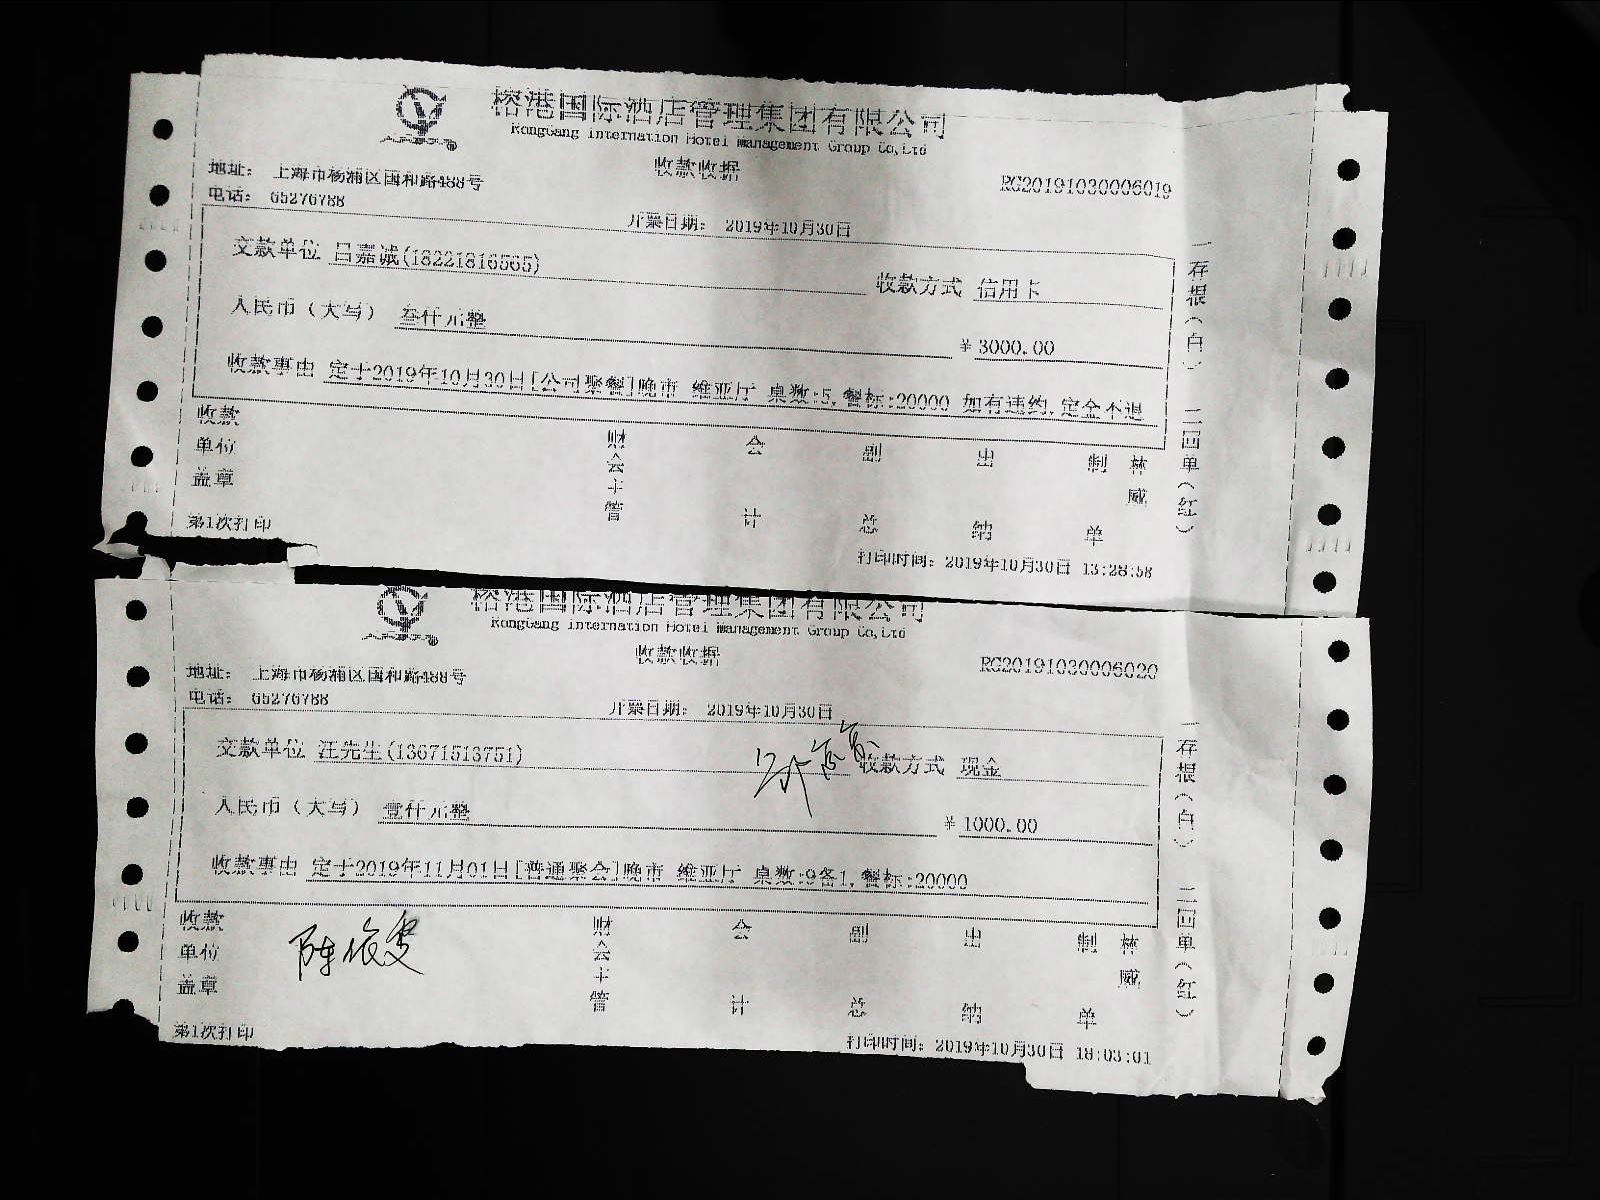 榕港国际酒店管理集团有限公司
RongGang International Hotel Management Group Co,Ltd
收款收据
RC20191030006019
地址： 上海市杨浦区国和路488号
电话： 65276788
开票日期： 2019年10月30日
交款单位 吕嘉诚(18221816565)
收款方式 信用卡
人民币（大写） 叁仟元整
¥ 3000.00
收款事由 定于2019年10月30日[公司聚餐]晚市 维亚厅 桌数:5,餐标:20000 如有违约,定金不退
收款单位盖章
财会主管
会计
副总
出纳
制单
林威
存根（白） 二回单（红）
第1次打印
打印时间：2019年10月30日 13:28:58
榕港国际酒店管理集团有限公司
RongGang International Hotel Management Group Co,Ltd
收款收据
RC20191030006020
地址： 上海市杨浦区国和路488号
电话： 65276788
开票日期： 2019年10月30日
交款单位 汪先生(13671513751)
收款方式 现金
人民币（大写） 壹仟元整
¥ 1000.00
收款事由 定于2019年11月01日[普通聚会]晚市 维亚厅 桌数:9备1,餐标:20000
收款单位盖章
财会主管
会计
副总
出纳
制单
林威
存根（白） 二回单（红）
第1次打印
打印时间：2019年10月30日 18:03:01